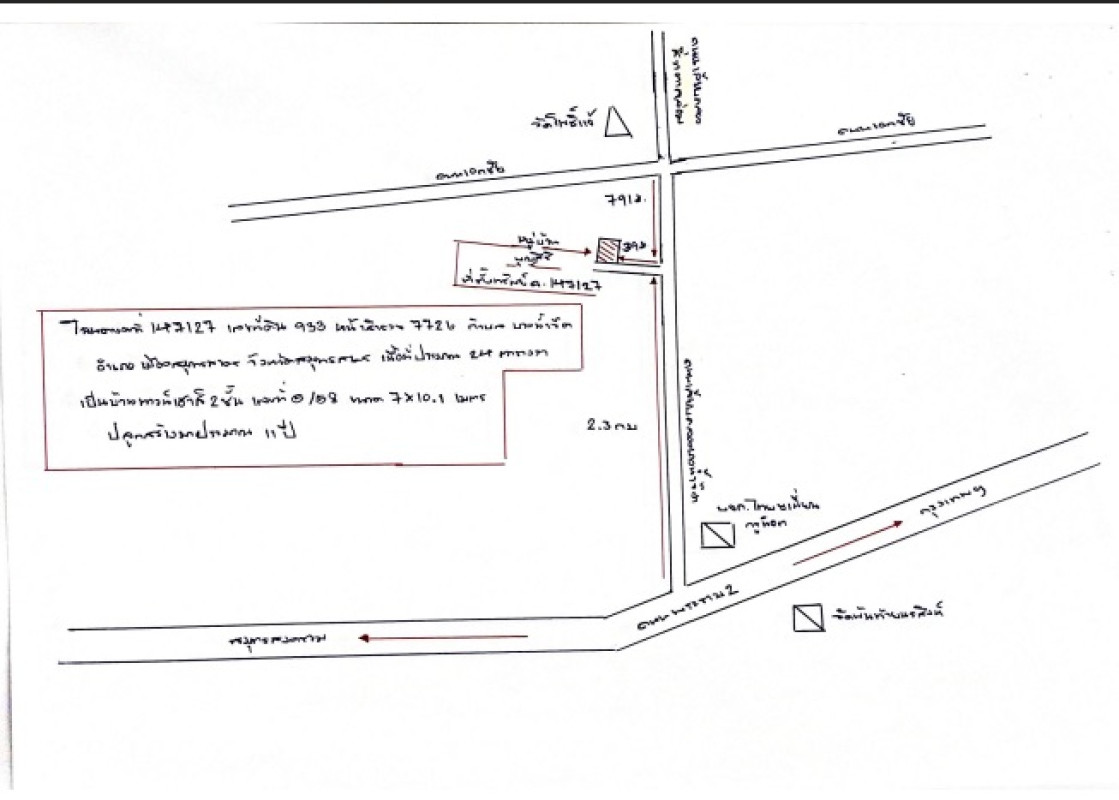 วัดโพธิ์แจ้
ถนนเอกชัย
ถนนเอกชัย
791ม.
39ม
หมู่บ้าน
ที่ตั้งทรัพย์ ฉ. 147127
โฉนดเลขที่ 147127 เลขที่ดิน 933 หน้าสำรวจ 7726 ตำบล บางน้ำจืด
อำเภอ เมืองสมุทรสาคร จังหวัดสมุทรสาคร เนื้อที่ประมาณ 24 ตารางวา
เป็นบ้านทาวน์เฮาส์ 2 ชั้น เลขที่ ๑/๑8 ขนาด 7×10.1 เมตร
ปลูกสร้างมาประมาณ 11 ปี
2.3 กม
กรุงเทพฯ
ถนนพระราม 2
สมุทรสงคราม
วัดพันท้ายนรสิงห์